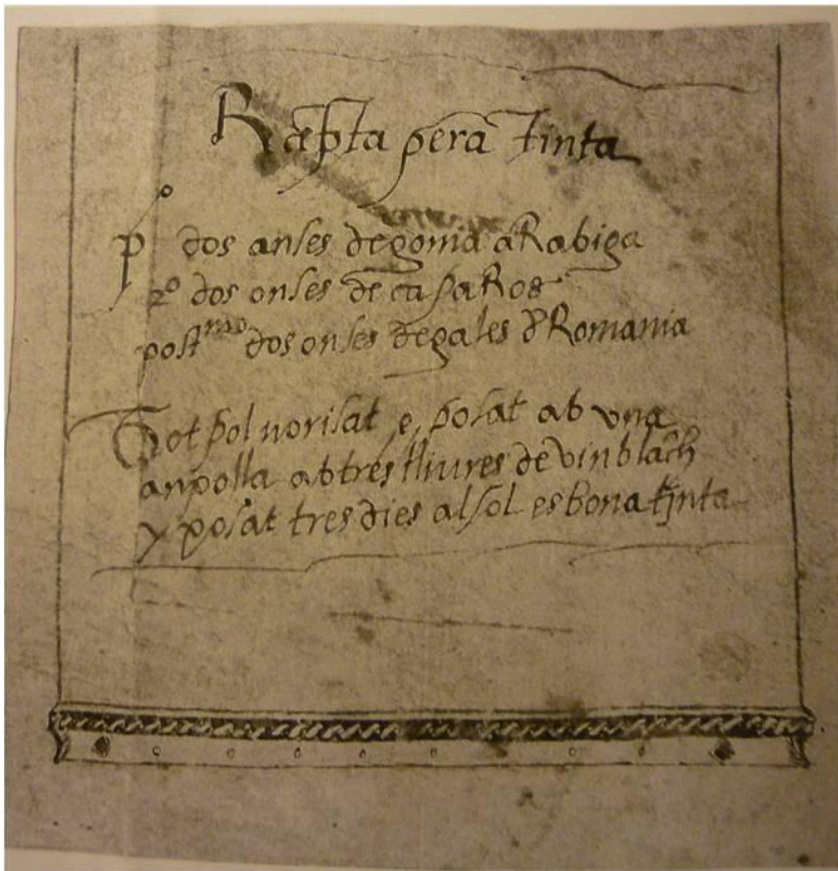 Recepta pera tinta
p.º dos onses de goma aRabiga
2º dos onses de capaRos
post.mo dos onses de gales d Romania
Tot polvorisat e posat ab una
anpolla ab tres lliures de vin blāch
y posat tres dies al sol es bona tinta